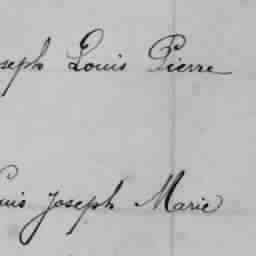 seph Louis Pierre
uis Joseph Marie